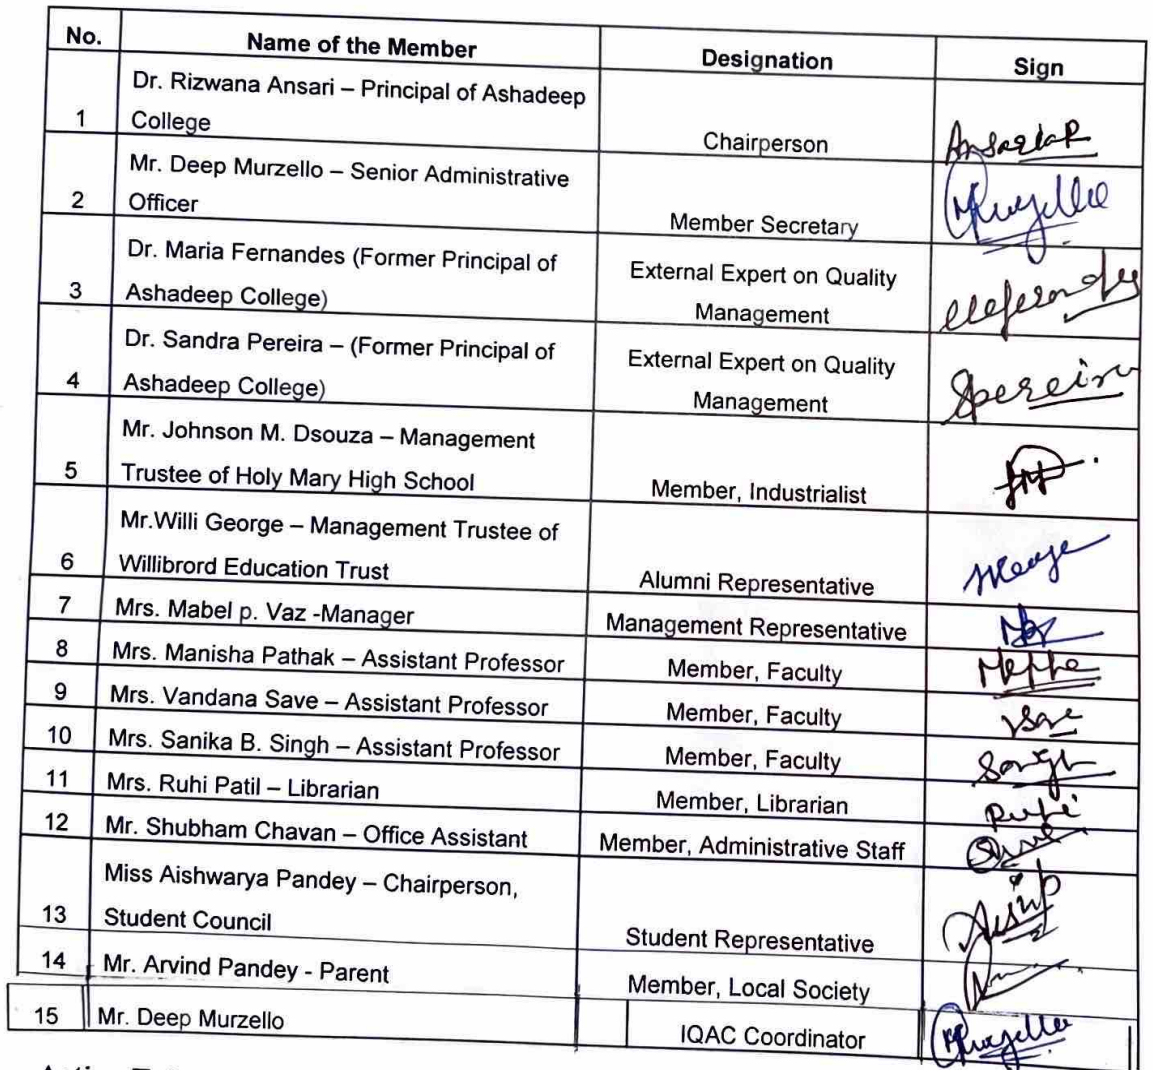 No. Name of the Member Designation Sign
Dr. Rizwana Ansari – Principal of Ashadeep
1 College Chairperson AnsariaR
Mr. Deep Murzello – Senior Administrative
2 Officer Member Secretary Murzello
Dr. Maria Fernandes (Former Principal of External Expert on Quality
3 Ashadeep College) Management
Dr. Sandra Pereira – (Former Principal of External Expert on Quality
4 Ashadeep College) Management Spereira
Mr. Johnson M. Dsouza – Management
5 Trustee of Holy Mary High School Member, Industrialist
Mr.Willi George – Management Trustee of
6 Willibrord Education Trust Alumni Representative
7 Mrs. Mabel p. Vaz -Manager Management Representative
8 Mrs. Manisha Pathak – Assistant Professor Member, Faculty
9 Mrs. Vandana Save – Assistant Professor Member, Faculty
10 Mrs. Sanika B. Singh – Assistant Professor Member, Faculty Singh
11 Mrs. Ruhi Patil – Librarian Member, Librarian Ruhi
12 Mr. Shubham Chavan – Office Assistant Member, Administrative Staff
Miss Aishwarya Pandey – Chairperson,
13 Student Council Student Representative
14 Mr. Arvind Pandey - Parent Member, Local Society
15 Mr. Deep Murzello IQAC Coordinator Murzello